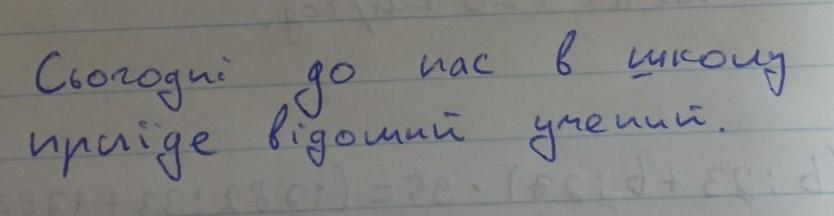 Сьогодні до нас в школу
приїде відомий учений.